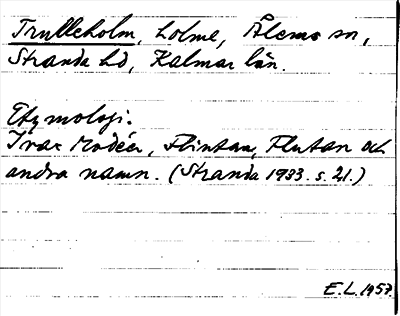 Trulleholm, holme, Ålems sn,
Stranda hd, Kalmar län.
Etymologi.
Ivar Modéer, Flintan, Flutan och
andra namn. (Stranda 1933. s. 21.)
E.L. 1957.